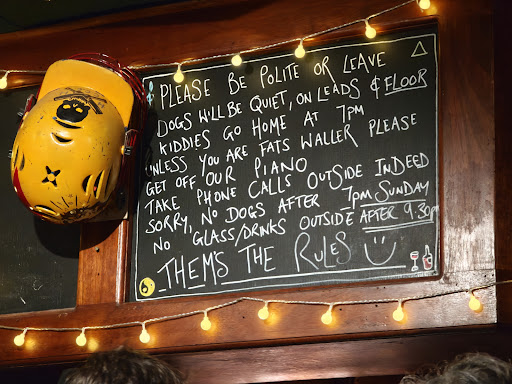 PLEASE BE POLITE OR LEAVE
DOGS WILL BE QUIET, ON LEADS & FLOOR
KIDDIES GO HOME AT 7PM
UNLESS YOU ARE FATS WALLER PLEASE
GET OFF OUR PIANO
TAKE PHONE CALLS OUTSIDE INDEED
SORRY, NO DOGS AFTER 7PM SUNDAY
NO GLASS/DRINKS OUTSIDE AFTER 9.30PM
THEM'S THE RULES